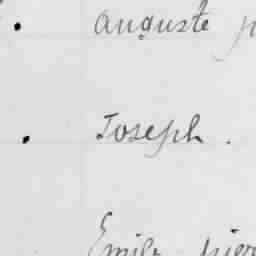 auguste
Joseph.
Emile pier